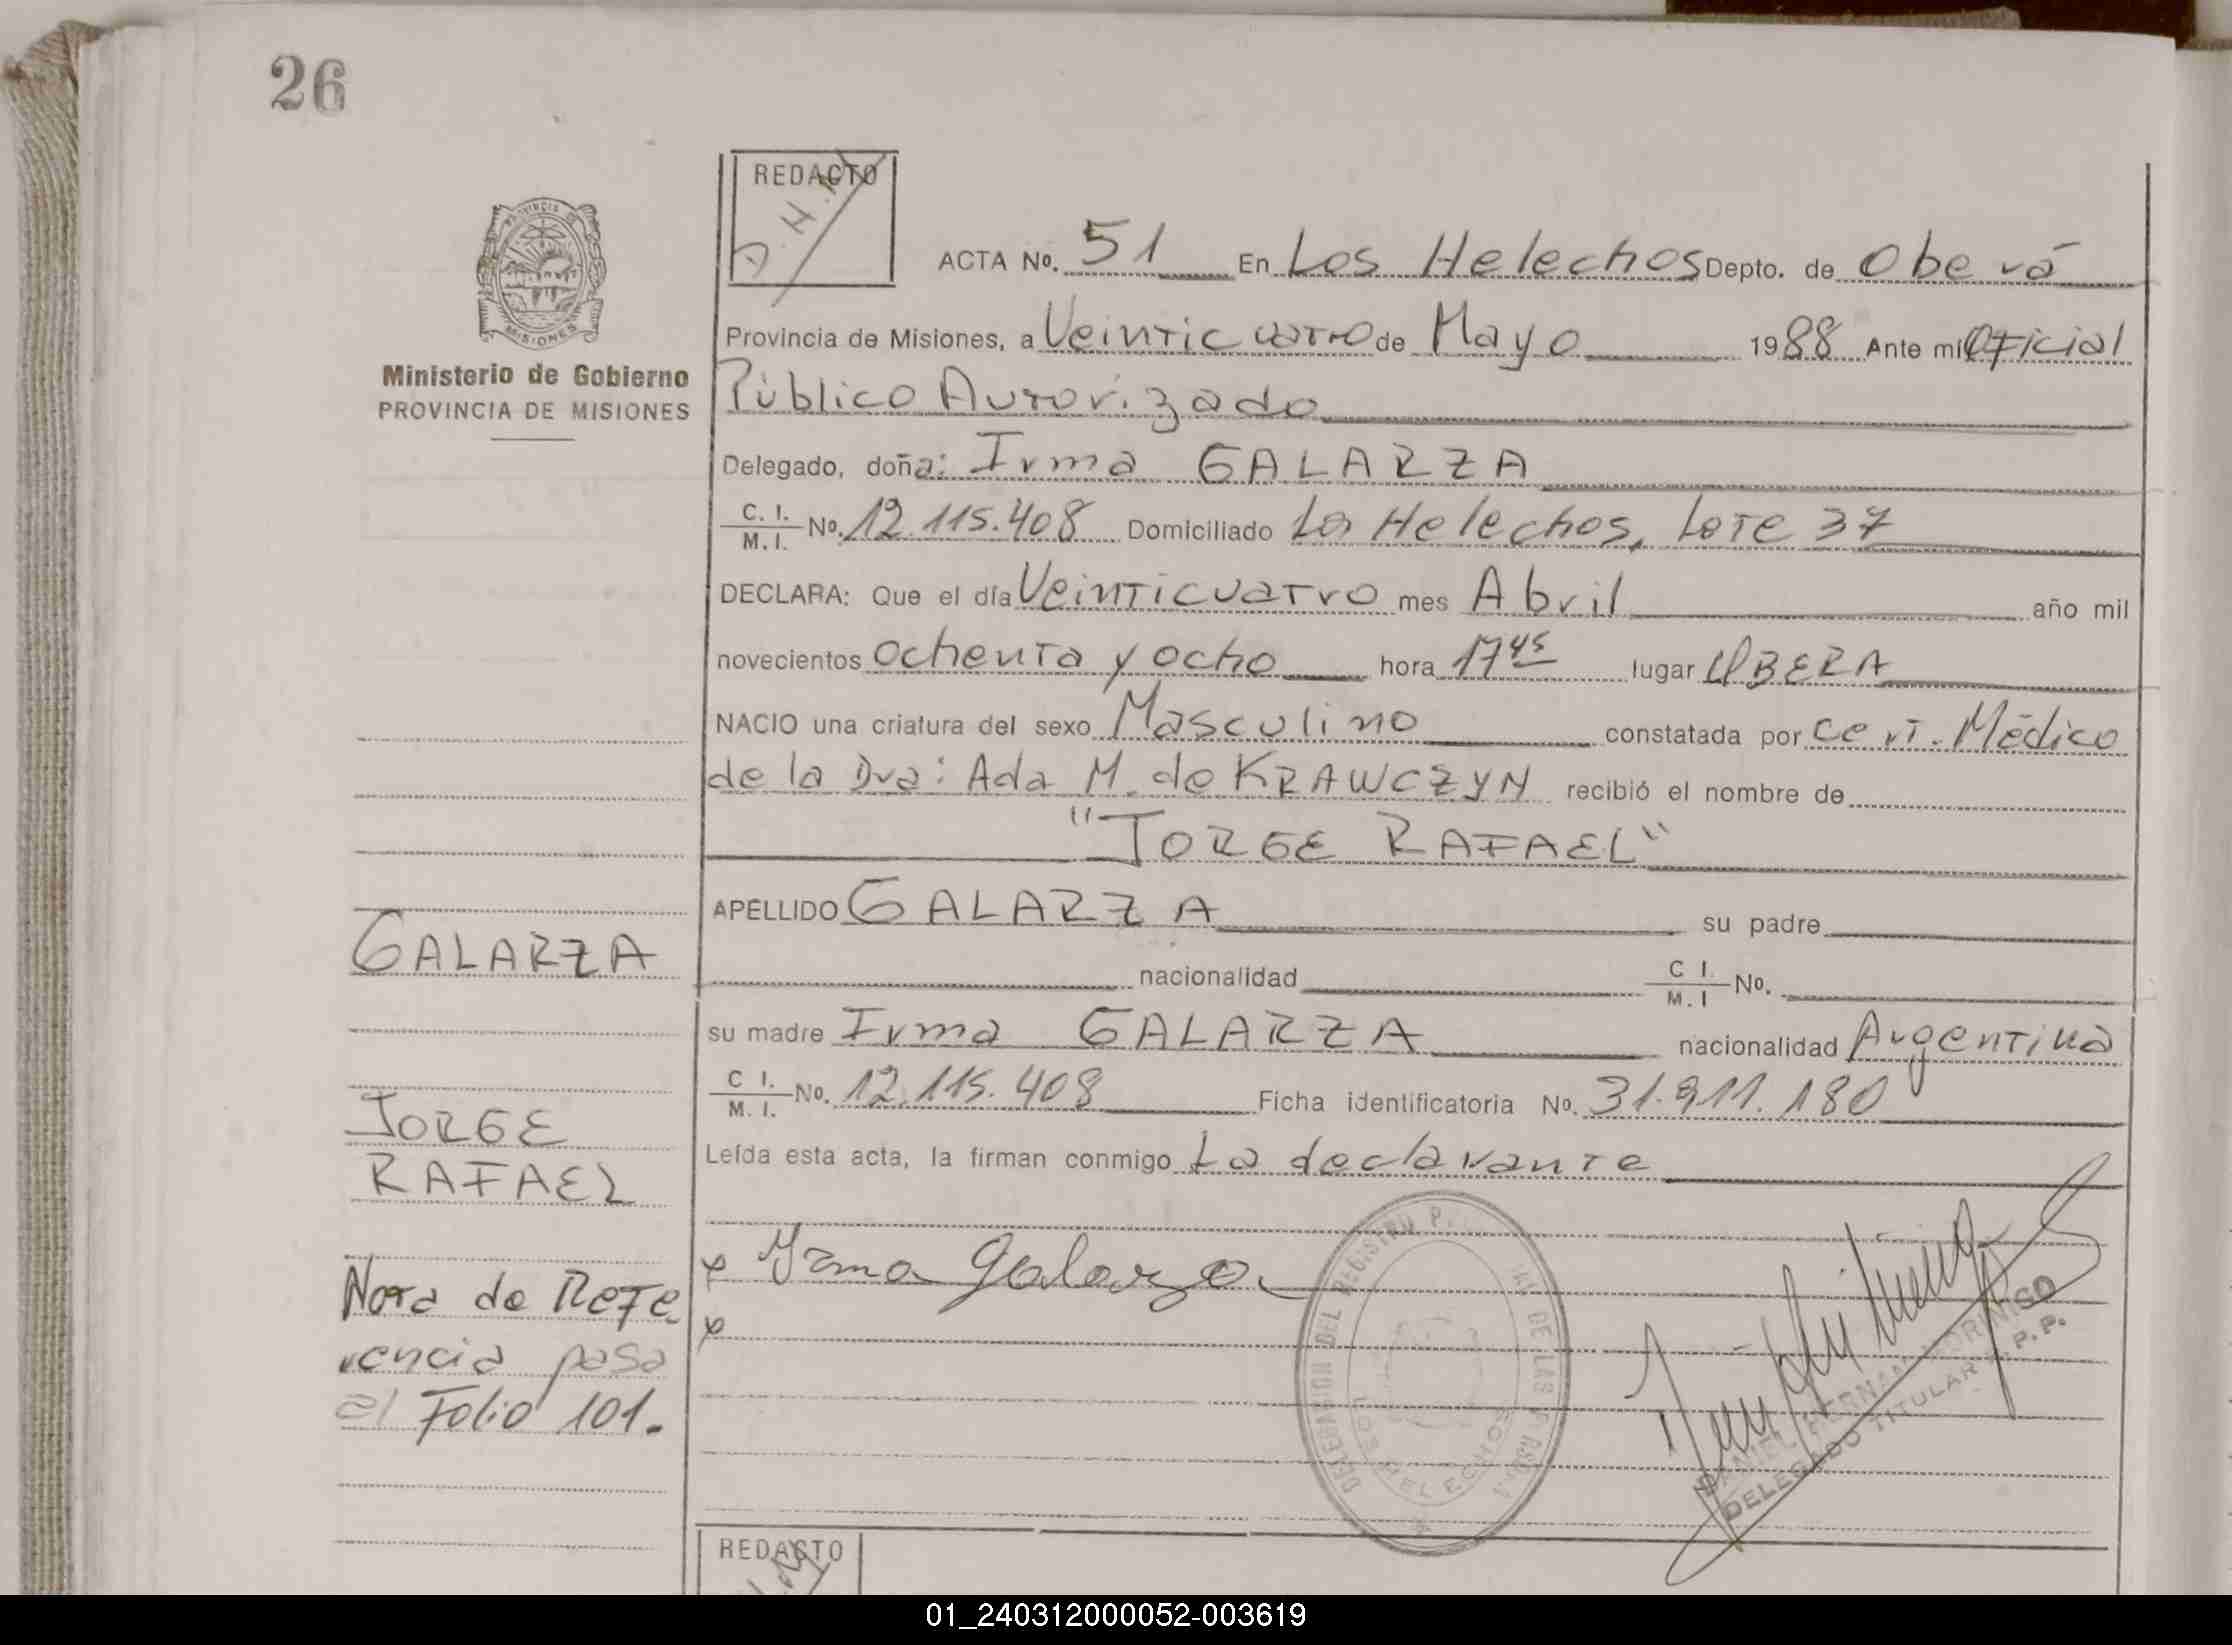 26
REDACTO
D.H.M
PROVINCIA DE
MISIONES
Ministerio de Gobierno
PROVINCIA DE MISIONES
ACTA No. 51 En Los Helechos Depto. de Oberá
Provincia de Misiones, a Veinticuatro de Mayo 1988 Ante mi Oficial
Público Autorizado
Delegado, doña: Irma GALARZA
C. I. / M. I. No. 12.115.408 Domiciliado Los Helechos, Lote 37
DECLARA: Que el día Veinticuatro mes Abril año mil
novecientos ochenta y ocho hora 17 45 lugar OBERA
NACIO una criatura del sexo Masculino constatada por cert. Médico
de la Dra: Ada M. de KRAWCZYN recibió el nombre de
"JORGE RAFAEL"
APELLIDO GALARZA su padre
nacionalidad C I. / M. I No.
su madre Irma GALARZA nacionalidad Argentina
C I. / M. I. No. 12.115.408 Ficha identificatoria No. 31.911.180
Leída esta acta, la firman conmigo La declarante
x Irma Galarza
x
GALARZA
JORGE
RAFAEL
Nota de Refe
rencia pasa
al Folio 101.
DELEGACION DEL REGISTRO P. DE LAS PERSONAS
LOS HELECHOS
DANIEL HERNAN
DELEGADO TITULAR R. P. P.
REDACTO
01_240312000052-003619